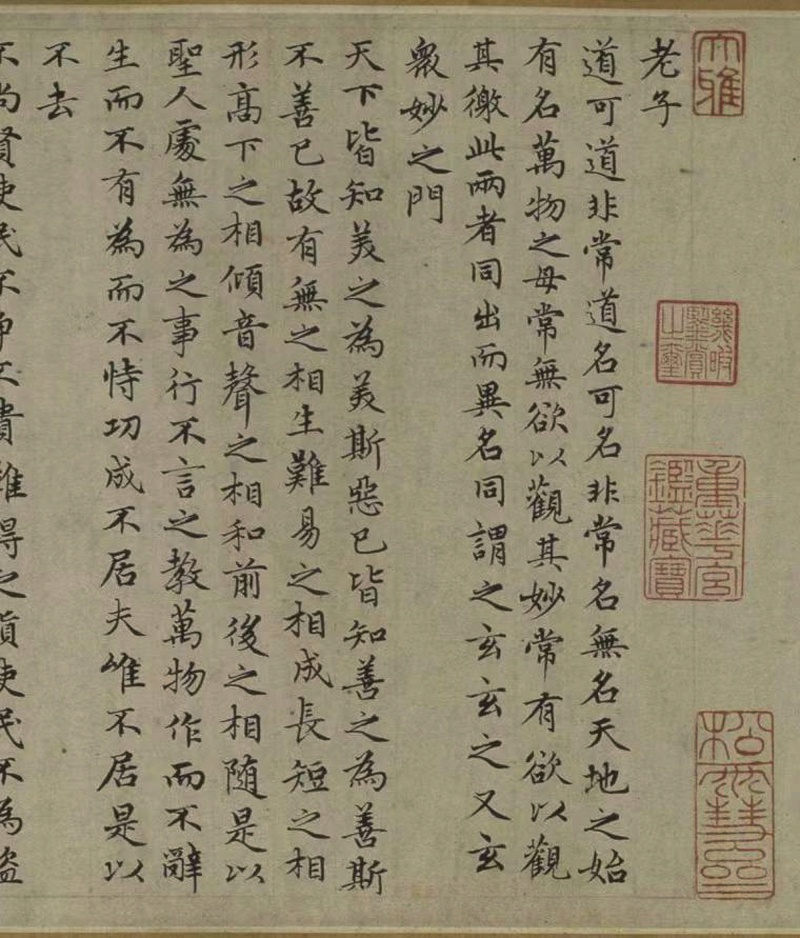 大雅
幾暇鑒賞之璽
重華宮鑑藏寶
老子
道可道非常道名可名非常名無名天地之始
有名萬物之母常無欲以觀其妙常有欲以觀
其徼此兩者同出而異名同謂之玄玄之又玄
衆妙之門
天下皆知美之為美斯惡已皆知善之為善斯
不善已故有無之相生難易之相成長短之相
形高下之相傾音聲之相和前後之相随是以
聖人處無為之事行不言之教萬物作而不辭
生而不有為而不恃功成不居夫惟不居是以
不去
不尚賢使民不爭不貴難得之貨使民不為盜